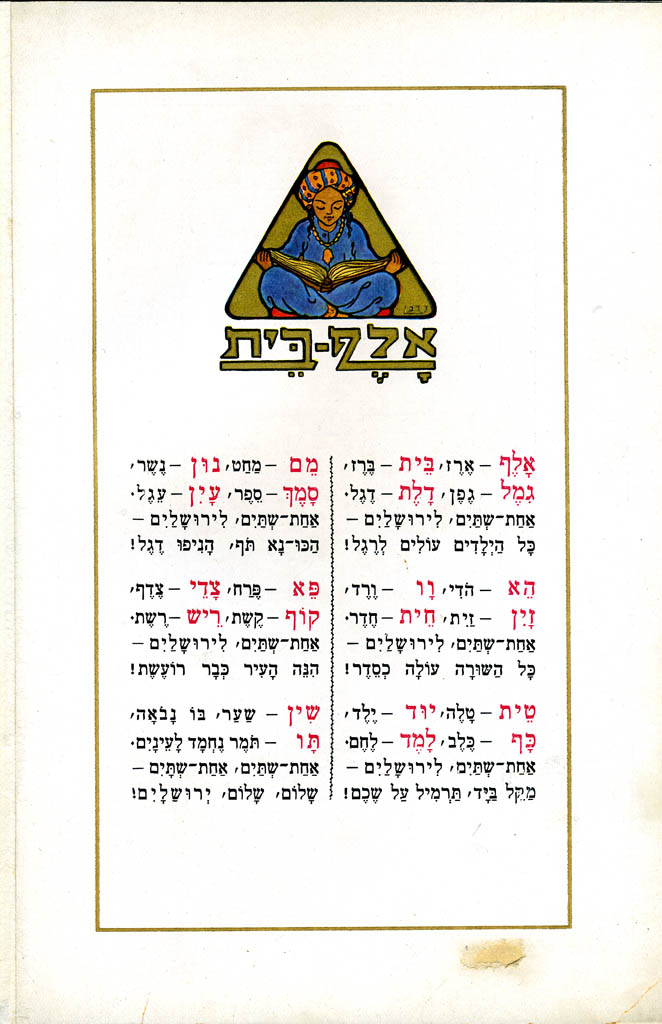 אָלֶף-בֵּית
אָלֶף – אֶרֶז, בֵּית – בֶּרֶז,
גִּמֶל – גֶּפֶן, דָּלֶת – דֶּגֶל.
אַחַת-שְׁתַּיִם, לִירוּשָׁלַיִם –
כָּל הַיְלָדִים עוֹלִים לְרֶגֶל!
הֵא – הֹדִי, וָו – וֶרֶד,
זַיִן – זַיִת, חֵית – חֶדֶר.
אַחַת-שְׁתַּיִם, לִירוּשָׁלַיִם –
כָּל הַשּׁוּרָה עוֹלָה כְסֵדֶר!
טֵית – טָלֶה, יוּד – יֶלֶד,
כָּף – כֶּלֶב, לָמֶד – לֶחֶם.
אַחַת-שְׁתַּיִם, לִירוּשָׁלַיִם –
מַקֵּל בַּיָּד, תַּרְמִיל עַל שֶׁכֶם!
מֵם – מַחַט, נוּן – נֶשֶׁר,
סָמֶךְ – סֵפֶר, עַיִן – עֵגֶל.
אַחַת-שְׁתַּיִם, לִירוּשָׁלַיִם –
הַכּוּ-נָא תֹּף, הָנִיפוּ דֶּגֶל!
פֵּא – פֶּרַח, צָדֵי – צֶדֶף,
קוֹף – קֶשֶׁת, רֵישׁ – רֶשֶׁת.
אַחַת-שְׁתַּיִם, לִירוּשָׁלַיִם –
הִנֵּה הָעִיר כְּבָר רוֹעֶשֶׁת!
שִׁין – שַׁעַר, בּוֹ נָבֹאָה,
תָּו – תֹּמֶר נֶחְמָד לָעֵינַיִם.
אַחַת-שְׁתַּיִם, אַחַת-שְׁתָּיִם –
שָׁלוֹם, שָׁלוֹם, יְרוּשָׁלָיִם!